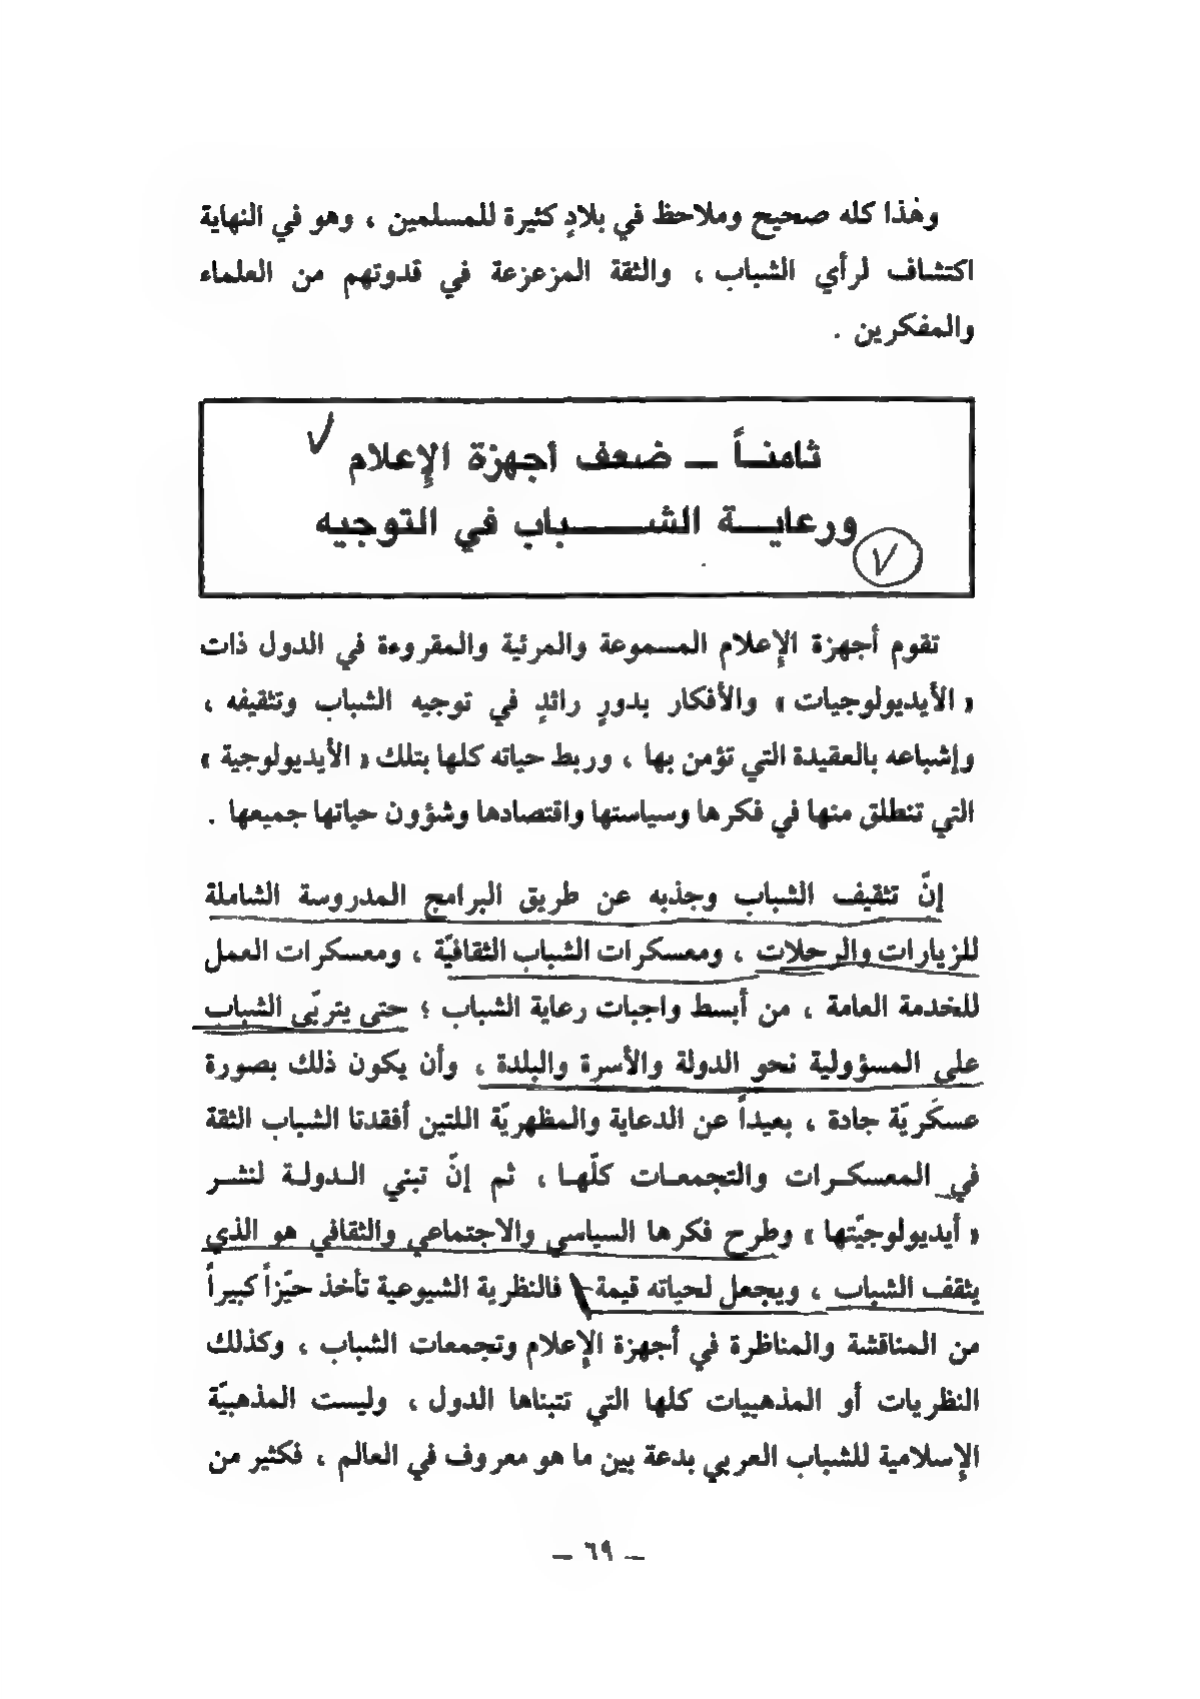 وهٰذا كله صحيح وملاحظ في بلادٍ كثيرة للمسلمين ، وهو في النهاية
اكتشاف لرأي الشباب ، والثقة المزعزعة في قدوتهم من العلماء
والمفكرين .
ثامنـاً ــ ضعف أجهزة الإعلام
ورعايــة الشــــباب في التوجيه
تقوم أجهزة الإعلام المسموعة والمرئية والمقروءة في الدول ذات
« الأيديولوجيات » والأفكار بدورٍ رائدٍ في توجيه الشباب وتثقيفه ،
وإشباعه بالعقيدة التي تؤمن بها ، وربط حياته كلها بتلك « الأيديولوجية »
التي تنطلق منها في فكرها وسياستها واقتصادها وشؤون حياتها جميعها .
إنّ تثقيف الشباب وجذبه عن طريق البرامج المدروسة الشاملة
للزيارات والرحلات ، ومعسكرات الشباب الثقافيّة ، ومعسكرات العمل
للخدمة العامة ، من أبسط واجبات رعاية الشباب ؛ حتى يتربّى الشباب
على المسؤولية نحو الدولة والأسرة والبلدة ، وأن يكون ذلك بصورة
عسكَريّة جادة ، بعيداً عن الدعاية والمظهريّة اللتين أفقدتا الشباب الثقة
في المعسكـرات والتجمعـات كلّهـا ، ثم إنّ تبني الـدولـة لنشـر
« أيديولوجيّتها » وطرح فكرها السياسي والاجتماعي والثقافي هو الذي
يثقف الشباب ، ويجعل لحياته قيمة فالنظرية الشيوعية تأخذ حيّزاً كبيراً
من المناقشة والمناظرة في أجهزة الإعلام وتجمعات الشباب ، وكذلك
النظريات أو المذهبيات كلها التي تتبناها الدول ، وليست المذهبيّة
الإسلامية للشباب العربي بدعة بين ما هو معروف في العالم ، فكثير من
ـ ٦٩ ـ